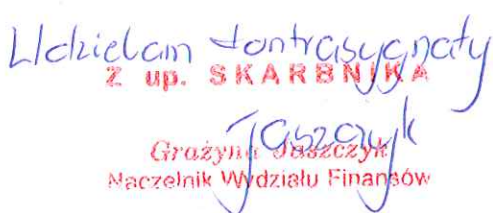 Udzielam kontrasygnaty
Z up. SKARBNIKA
Jaszczyk
Grażyna Jaszczyk
Naczelnik Wydziału Finansów